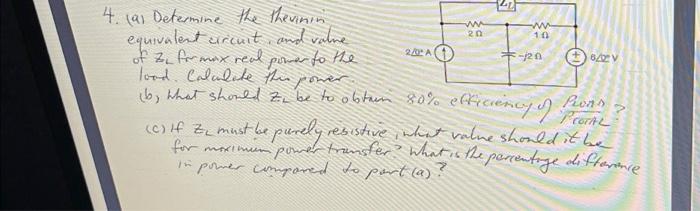 4. (a) Determine the thevinin
equivalent circuit, and value
of ZL for max real power to the
load. Calculate this power.
(b) what should ZL be to obtain 80% efficiency of PLOAD / ?
(c) If ZL must be purely resistive, what value should it be
for maximum power transfer? What is the percentage difference
in power compared to part (a)?
ZL
2Ω
1Ω
2/0° A
-j2Ω
6/0° V